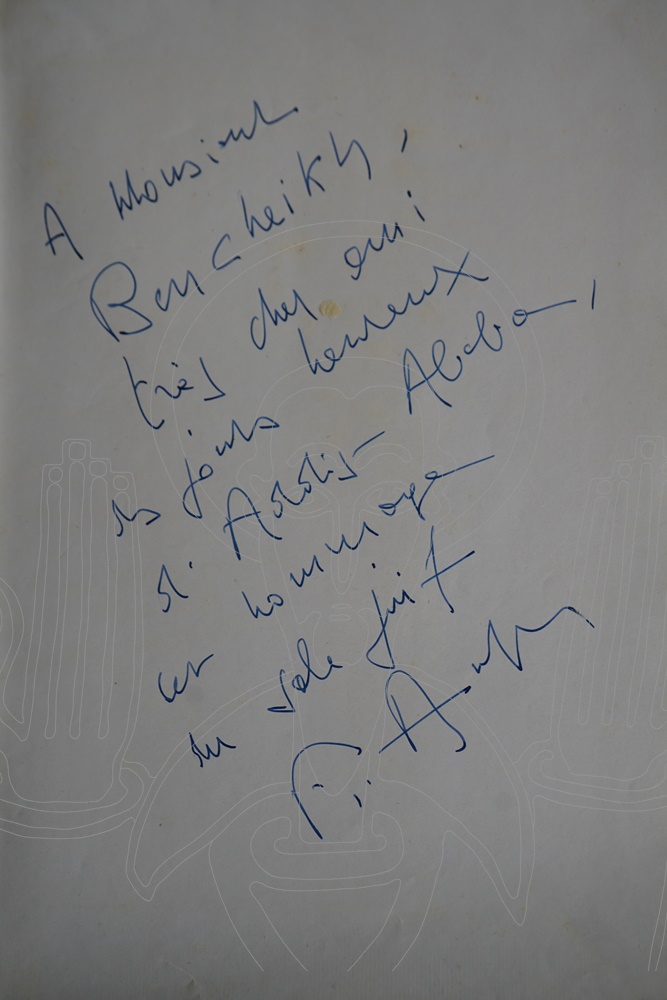 A Monsieur
Bencheikh,
très cher ami
des jours heureux
d'Addis-Ababa,
cet hommage
du sale juif